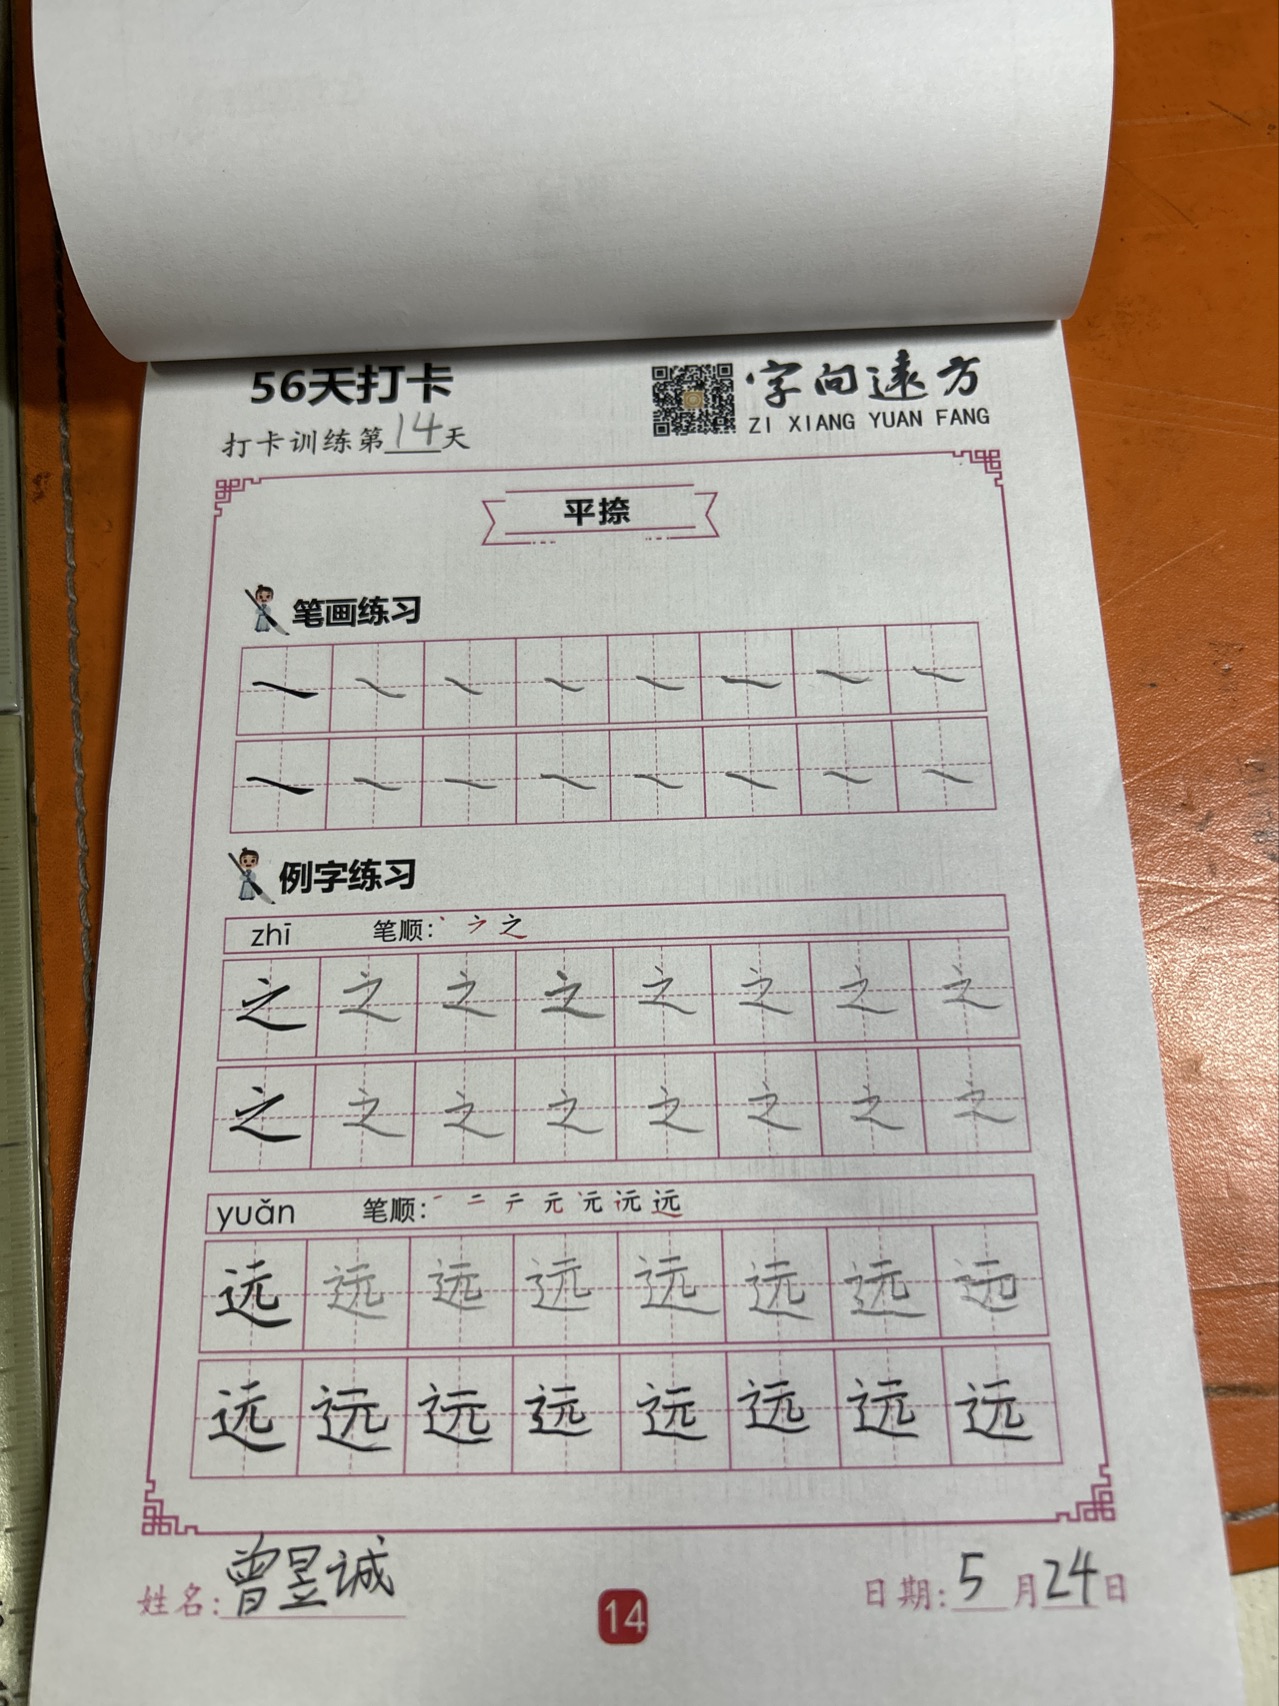 56天打卡
打卡训练第14天
字向遠方
ZI XIANG YUAN FANG
平捺
笔画练习
例字练习
zhī 笔顺: 丶 ㇇ 之
之 之 之 之 之 之 之 之
之 之 之 之 之 之 之 之
yuǎn 笔顺: 一 二 テ 元 元 远 远
远 远 远 远 远 远 远 远
远 远 远 远 远 远 远 远
姓名: 曾昱诚
14
日期: 5月24日